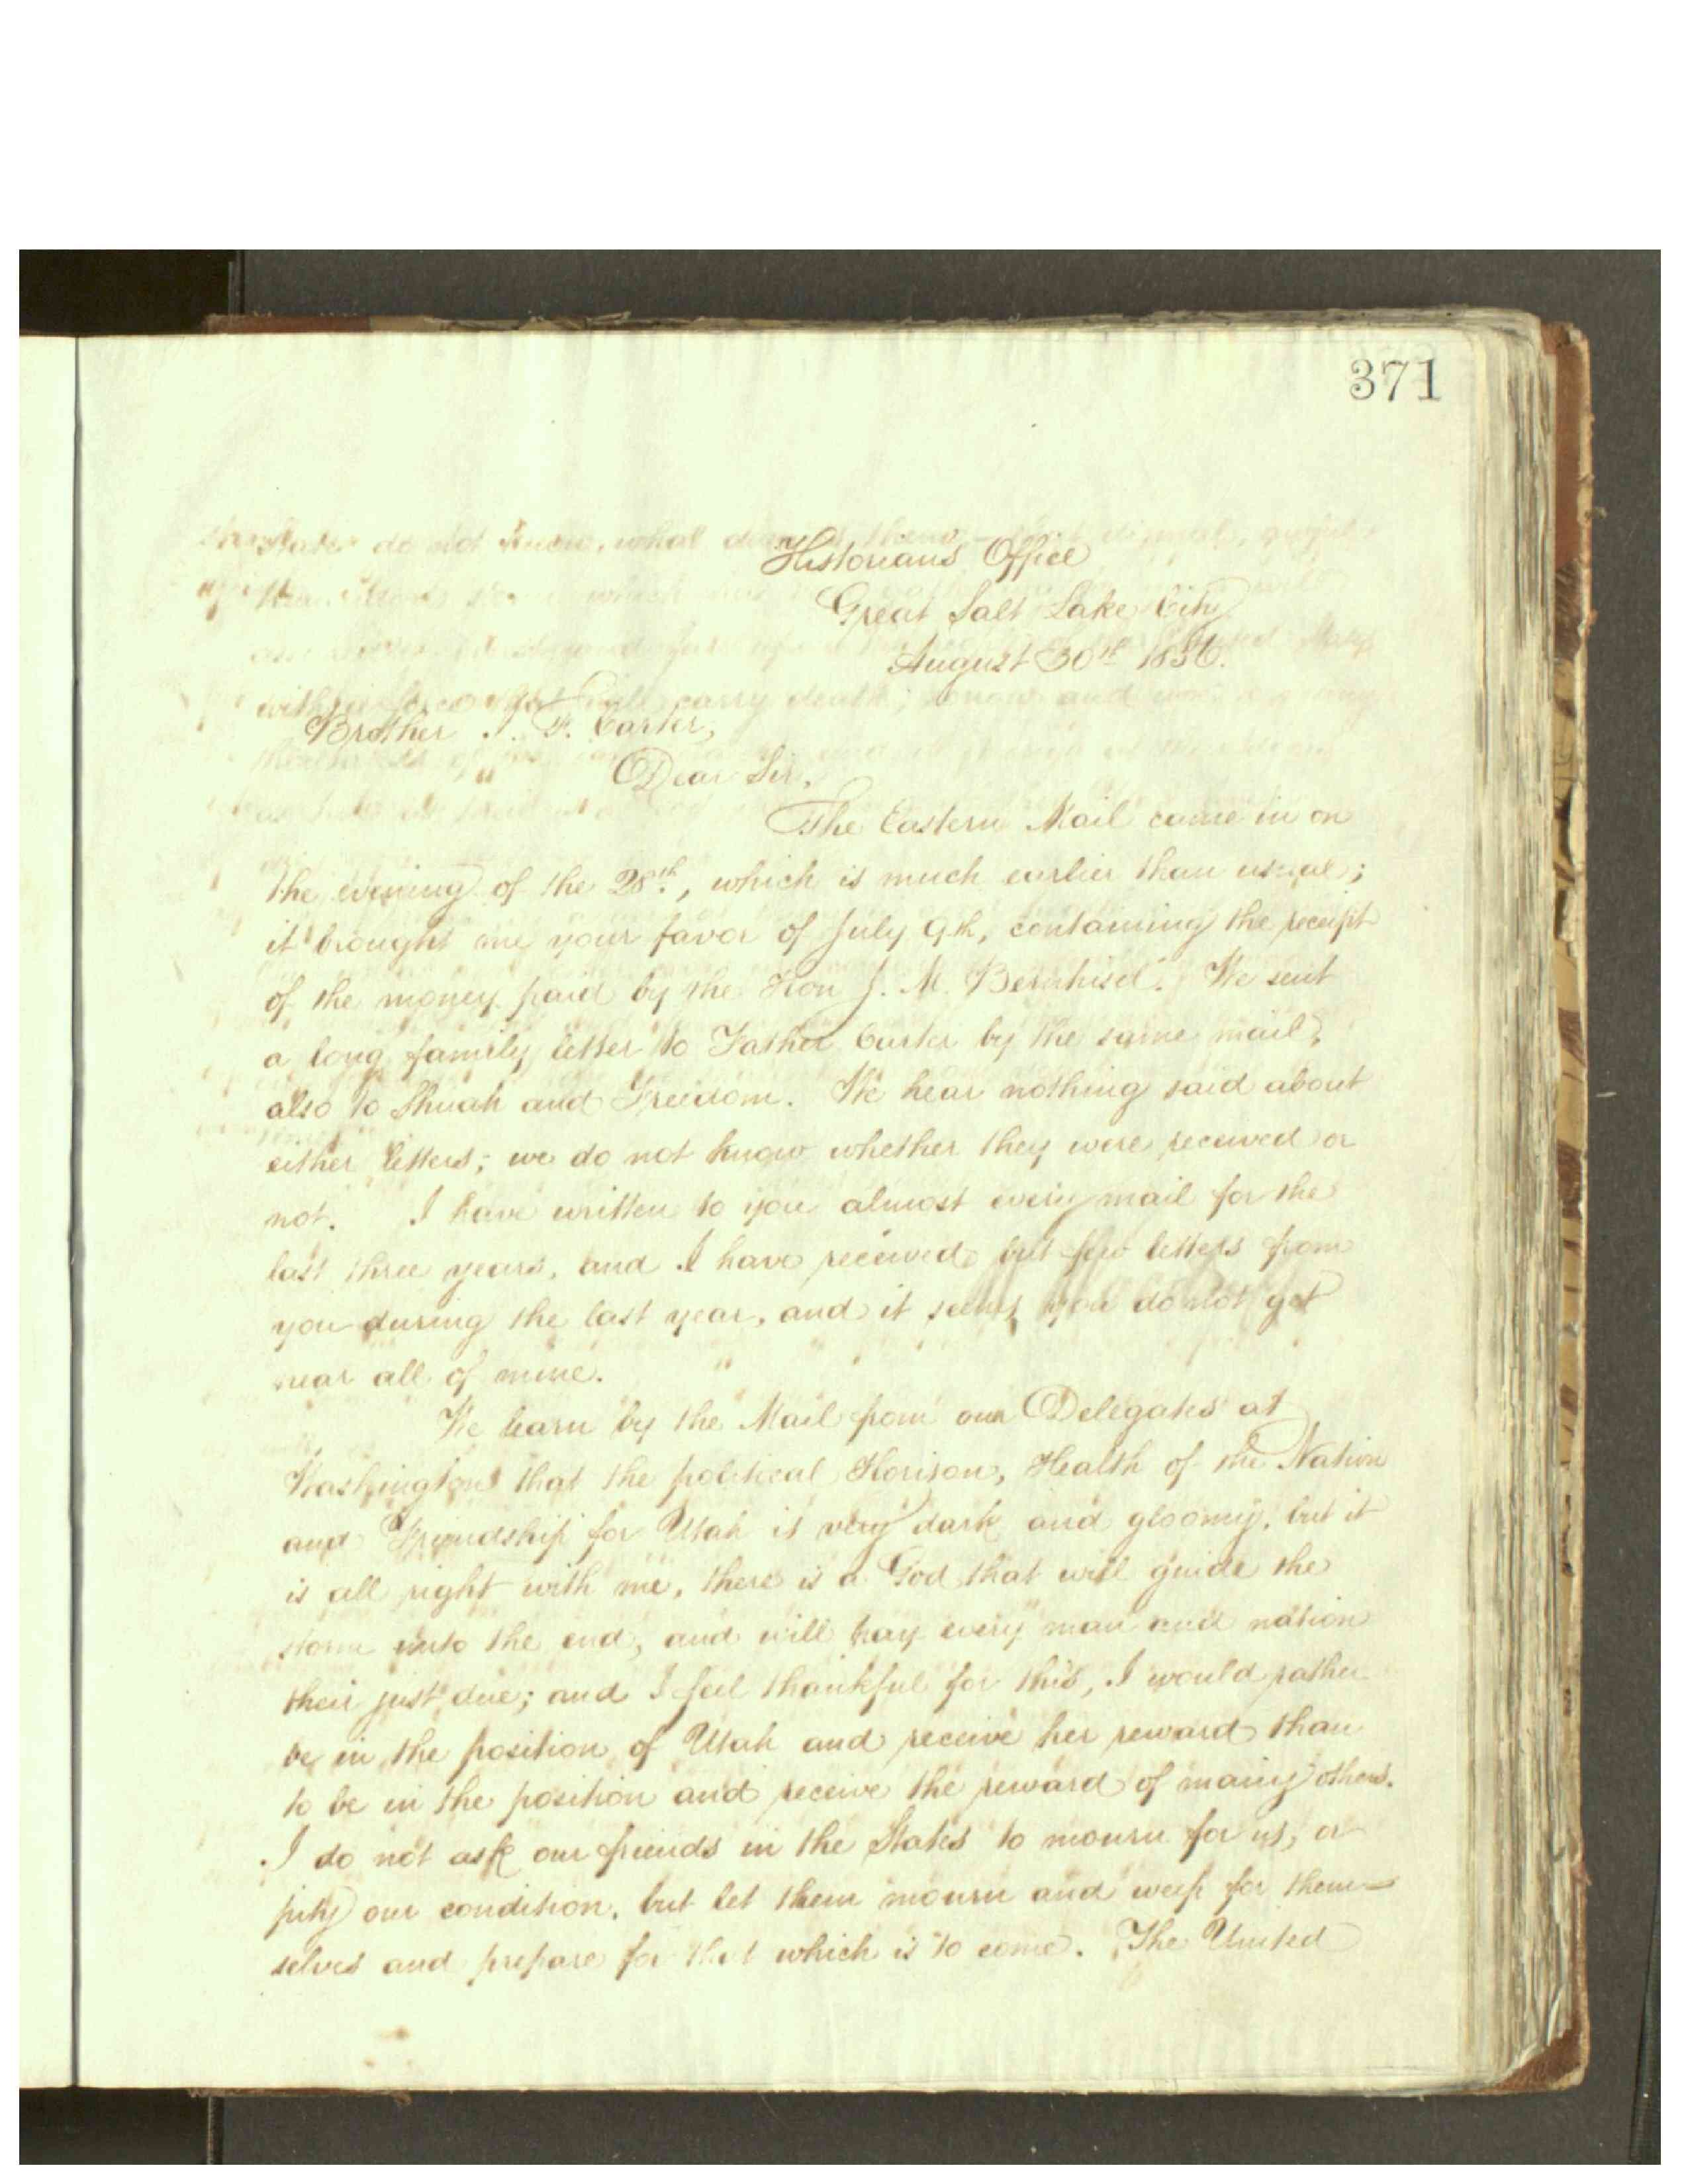 371
Historians Office
Great Salt Lake City
August 30th 1856.
Brother I. F. Carter,
Dear Sir,
The Eastern Mail came in on
the evening of the 28th, which is much earlier than usual;
it brought me your favor of July 9th, containing the receipt
of the money paid by the Hon J. M. Bernhisel. We sent
a long family letter to Father Carter by the same mail,
also to Shuah and Freedom. We hear nothing said about
either letters; we do not know whether they were received or
not. I have written to you almost every mail for the
last three years, and I have received but few letters from
you during the last year, and it seems you do not get
near all of mine.
We learn by the Mail from our Delegates at
Washington that the political Horison, Health of the Nation
and Friendship for Utah is very dark and gloomy, but it
is all right with me, there is a God that will guide the
storm unto the end, and will pay every man and nation
their just due; and I feel thankful for this, I would rather
be in the position of Utah and receive her reward than
to be in the position and receive the reward of many others.
I do not ask our friends in the States to mourn for us, or
pity our condition, but let them mourn and weep for them=
selves and prepare for that which is to come. The United